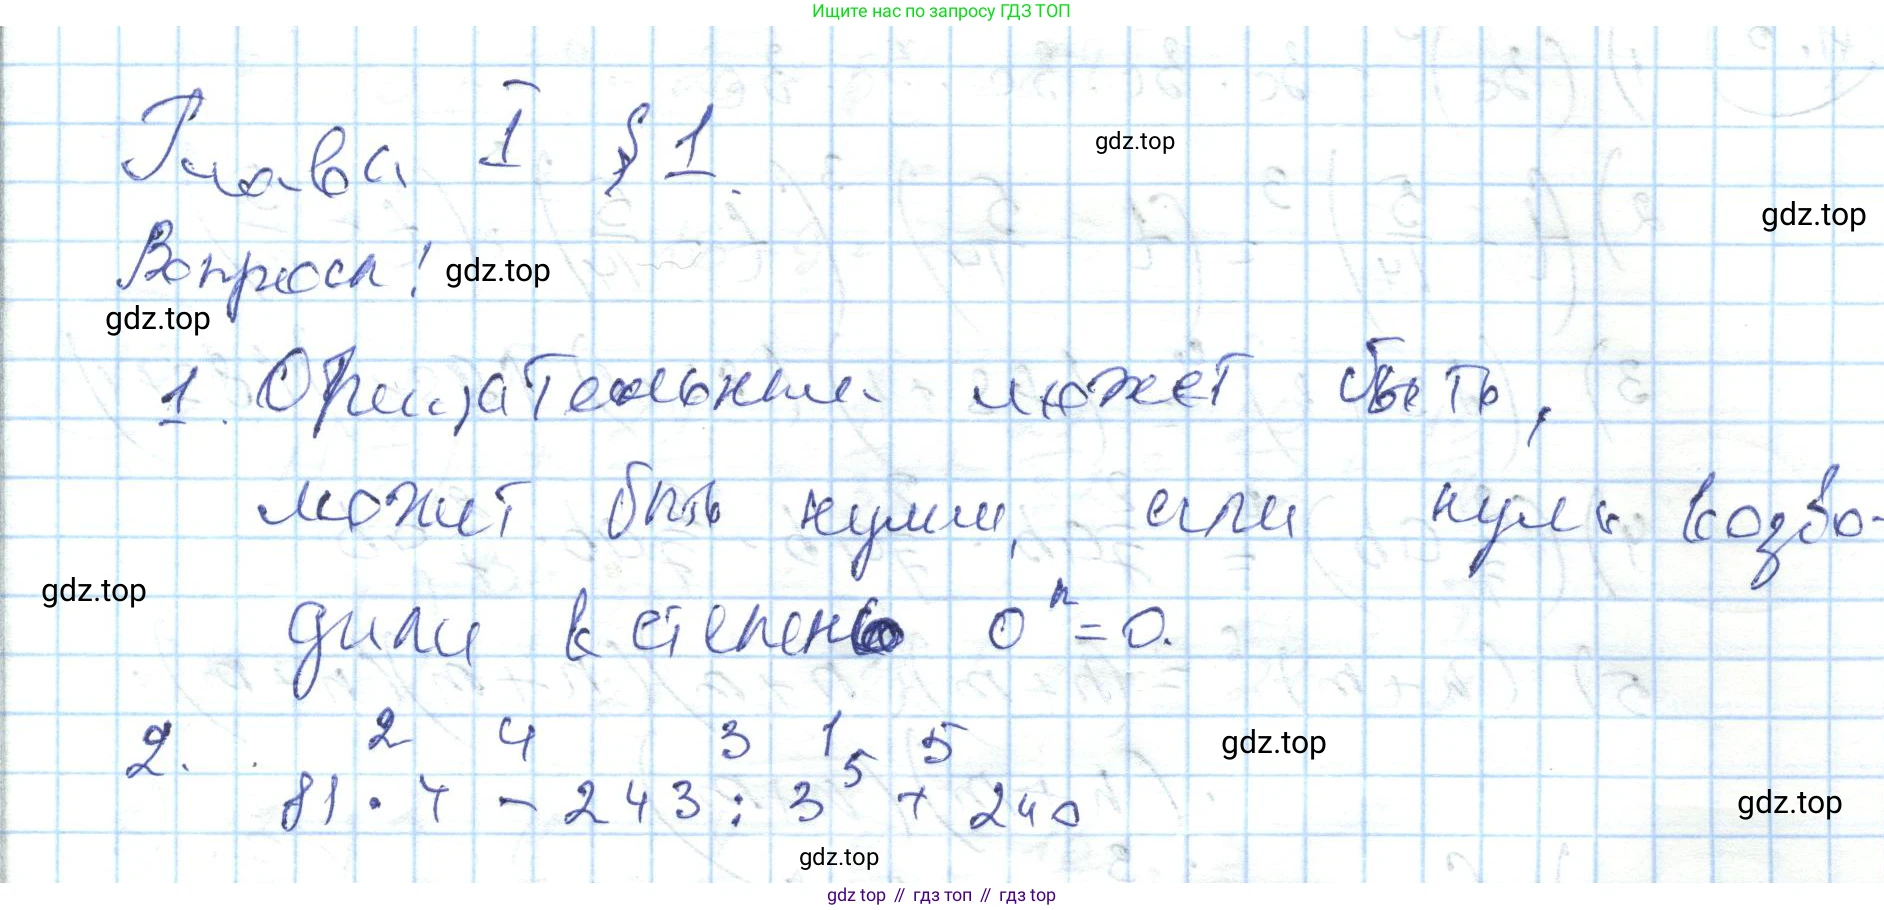 Ищите нас по запросу ГДЗ ТОП
Глава I § 1.
gdz.top
gdz.top
Вопросы!
gdz.top
gdz.top
1. Отрицательным может быть,
может быть нулём, если нуль возво-
gdz.top
дили в степень 0ⁿ = 0.
2. 2 4 3 1 5
gdz.top
81 · 4 - 243 : 3⁵ + 240
gdz.top
gdz.top
gdz top // гдз топ // гдз top